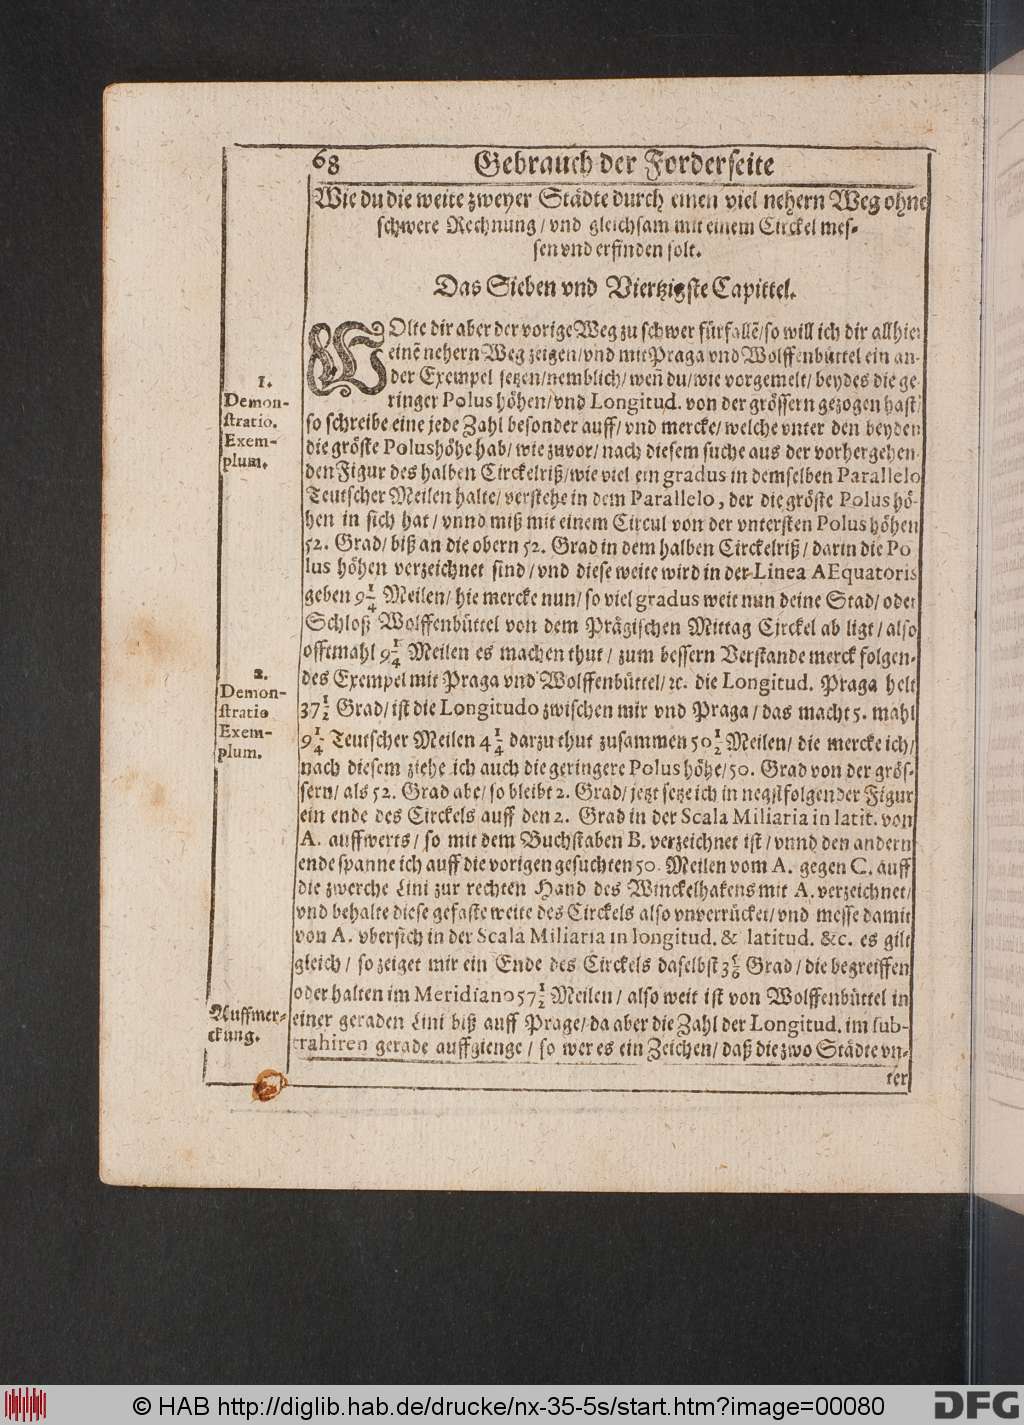 68 Gebrauch der Forderseite
Wie du die weite zweyer Städte durch einen viel nehern Weg ohne
schwere Rechnung / vnd gleichsam mit einem Circkel mes-
sen vnd erfinden solt.
Das Sieben vnd Viertzigste Capittel.
WOlte dir aber der vorige Weg zu schwer fürfallẽ / so will ich dir allhier
einẽ nehern Weg zeigen / vnd mit Praga vnd Wolffenbüttel ein an-
der Exempel setzen / nemblich / weñ du / wie vorgemelt / beydes die ge-
ringer Polus höhen / vnd Longitud. von der grössern gezogen hast /
so schreibe eine jede Zahl besonder auff / vnd mercke / welche vnter den beyden
die gröste Polushöhe hab / wie zuvor / nach diesem suche aus der vorhergehen-
den Figur des halben Circkelriß / wie viel ein gradus in demselben Parallelo
Teutscher Meilen halte / verstehe in dem Parallelo, der die gröste Polus hö-
hen in sich hat / vnnd miß mit einem Circul von der vntersten Polus höhen
52. Grad / biß an die obern 52. Grad in dem halben Circkelriß / darin die Po
lus höhen verzeichnet sind / vnd diese weite wird in der Linea AEquatoris
geben 9 1/4 Meilen / hie mercke nun / so viel gradus weit nun deine Stad / oder
Schloß Wolffenbüttel von dem Prägischen Mittag Circkel ab ligt / also
offtmahl 9 1/4 Meilen es machen thut / zum bessern Verstande merck folgen-
des Exempel mit Praga vnd Wolffenbüttel / ꝛc. die Longitud. Praga helt
37 1/2 Grad / ist die Longitudo zwischen mir vnd Praga / das macht 5. mahl
9 1/4 Teutscher Meilen 4 1/4 darzu thut zusammen 50 1/2 Meilen / die mercke ich /
nach diesem ziehe ich auch die geringere Polus höhe / 50. Grad von der grös-
sern / als 52. Grad abe / so bleibt 2. Grad / jetzt setze ich in negstfolgender Figur
ein ende des Circkels auff den 2. Grad in der Scala Miliaria in latit. von
A. auffwerts / so mit dem Buchstaben B. verzeichnet ist / vnnd den andern
ende spanne ich auff die vorigen gesuchten 50. Meilen vom A. gegen C. auff
die zwerche Lini zur rechten Hand des Winckelhakens mit A. verzeichnet /
vnd behalte diese gefaste weite des Circkels also vnverrücket / vnd messe damit
von A. vbersich in der Scala Miliaria in longitud. & latitud. &c. es gilt
gleich / so zeiget mir ein Ende des Circkels daselbst Grad / die begreiffen
oder halten im Meridiano 57 1/2 Meilen / also weit ist von Wolffenbüttel in
einer geraden Lini biß auff Prage / da aber die Zahl der Longitud. im sub-
trahiren gerade auffgienge / so wer es ein Zeichen / daß die zwo Städte vn-
ter
1.
Demon-
stratio.
Exem-
plum.
2.
Demon-
stratio
Exem-
plum.
Auffmer-
ckung.
© HAB http://diglib.hab.de/drucke/nx-35-5s/start.htm?image=00080
DFG